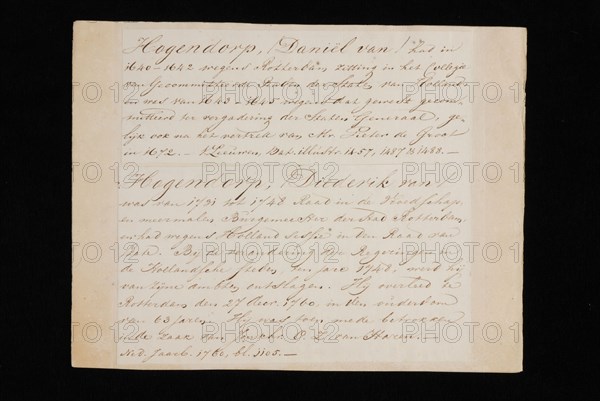 Hogendorp, (Daniël van) had in
1640-1642 wegens Rotterdam zitting in het Collegie
van Gecommitteerde Raden der Staten van Holland
en was van 1643-1645 wegens dat gewest gecom-
mitteerd ter vergadering der Staten Generaal, ge-
lijk ook na het vertrek van Mr. Pieter de Groot
in 1672. - v. Leeuwen, Bat. illustr. 1457, 1487 & 1488. -
Hogendorp, (Diederik van)
was van 1721 tot 1748 Raad in de Vroedschap
en meermalen Burgemeester der Stad Rotterdam
en had wegens Holland sessie in den Raad van
State. By de verandering der Regeering in
de Hollandsche steden, ten jare 1748, werd hij
van zijne ambten ontslagen. Hij overleed te
Rotterdam den 27 1760 in den ouderdom
van 63 jaren. Hij was toen mede betrokken
in de zaak van O. Z. van Haren. -
Ned. Jaarb. 1760, bl. 1105. -